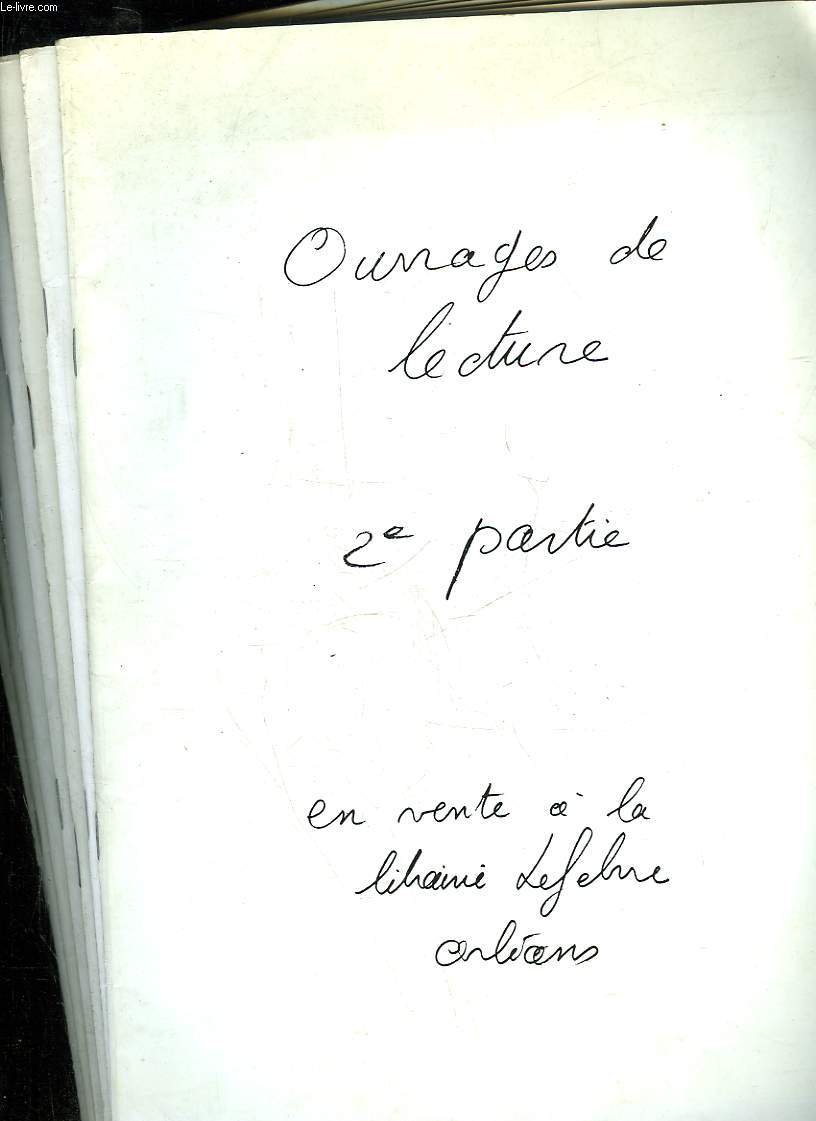 Le-livre.com
Ouvrages de
lecture
2e partie
en vente à la
librairie Lefebvre
orléans